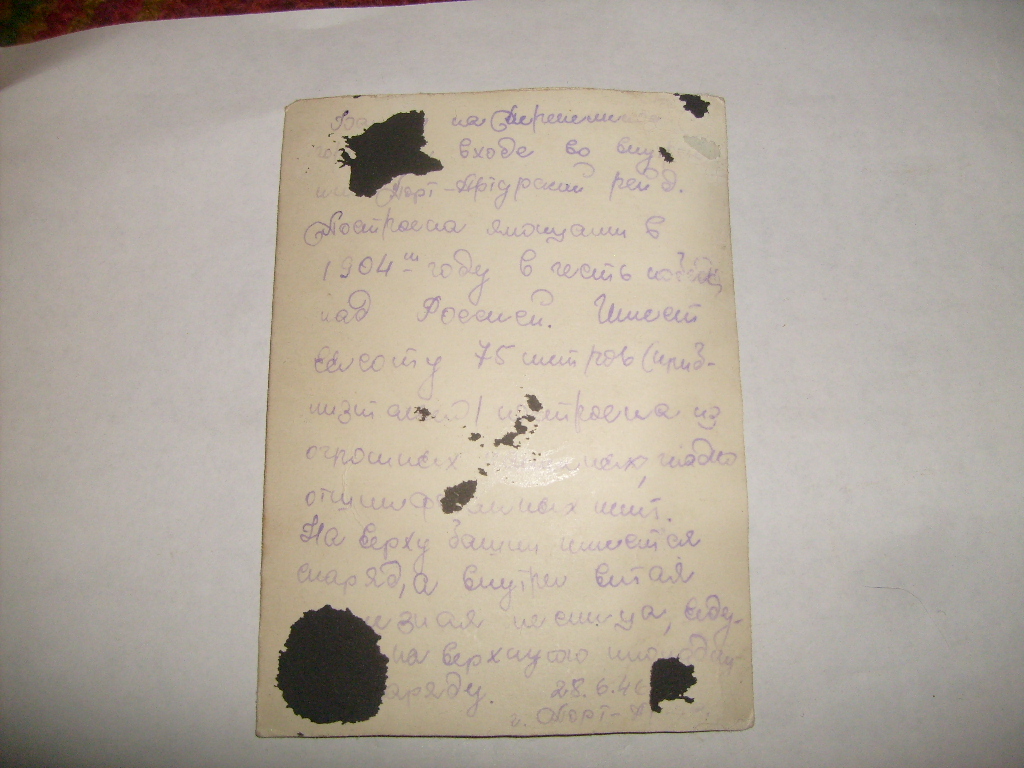 на Перепелиной
входе во внут
Порт-Артурский рейд.
Построена японцами в
1904 ш году в честь победы
над Россией. Имеет
высоту 75 метров (приб-
лизительно) построена из
огромных гладко
отшлифованных плит.
На верху башни имеется
снаряд, а внутри витая
лесница, веду-
на верхнюю площадку
аряду. 28.6.46
г. Порт-А